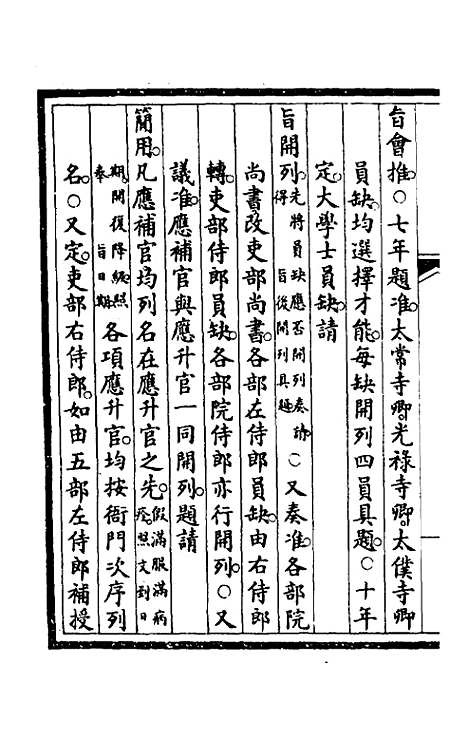 旨會推。○七年題准太常寺卿。光祿寺卿。太僕寺卿
員缺。均選擇才能。每缺開列四員具題。○十年
定。大學士員缺。請
旨開列。先將員缺應否開列奏請。得旨後開列具題。○又奏准。各部院
尚書改吏部尚書。各部左侍郎員缺。由右侍郎
轉。吏部侍郎員缺。各部院侍郎亦行開列。○又
議准。應補官與應升官一同開列。題請
簡用。凡應補官均列名在應升官之先。假滿服滿病痊。照文到日
期。開復降級。照奉旨日期。各項應升官。均按衙門次序列
名。○又定。吏部右侍郎。如由五部左侍郎補授